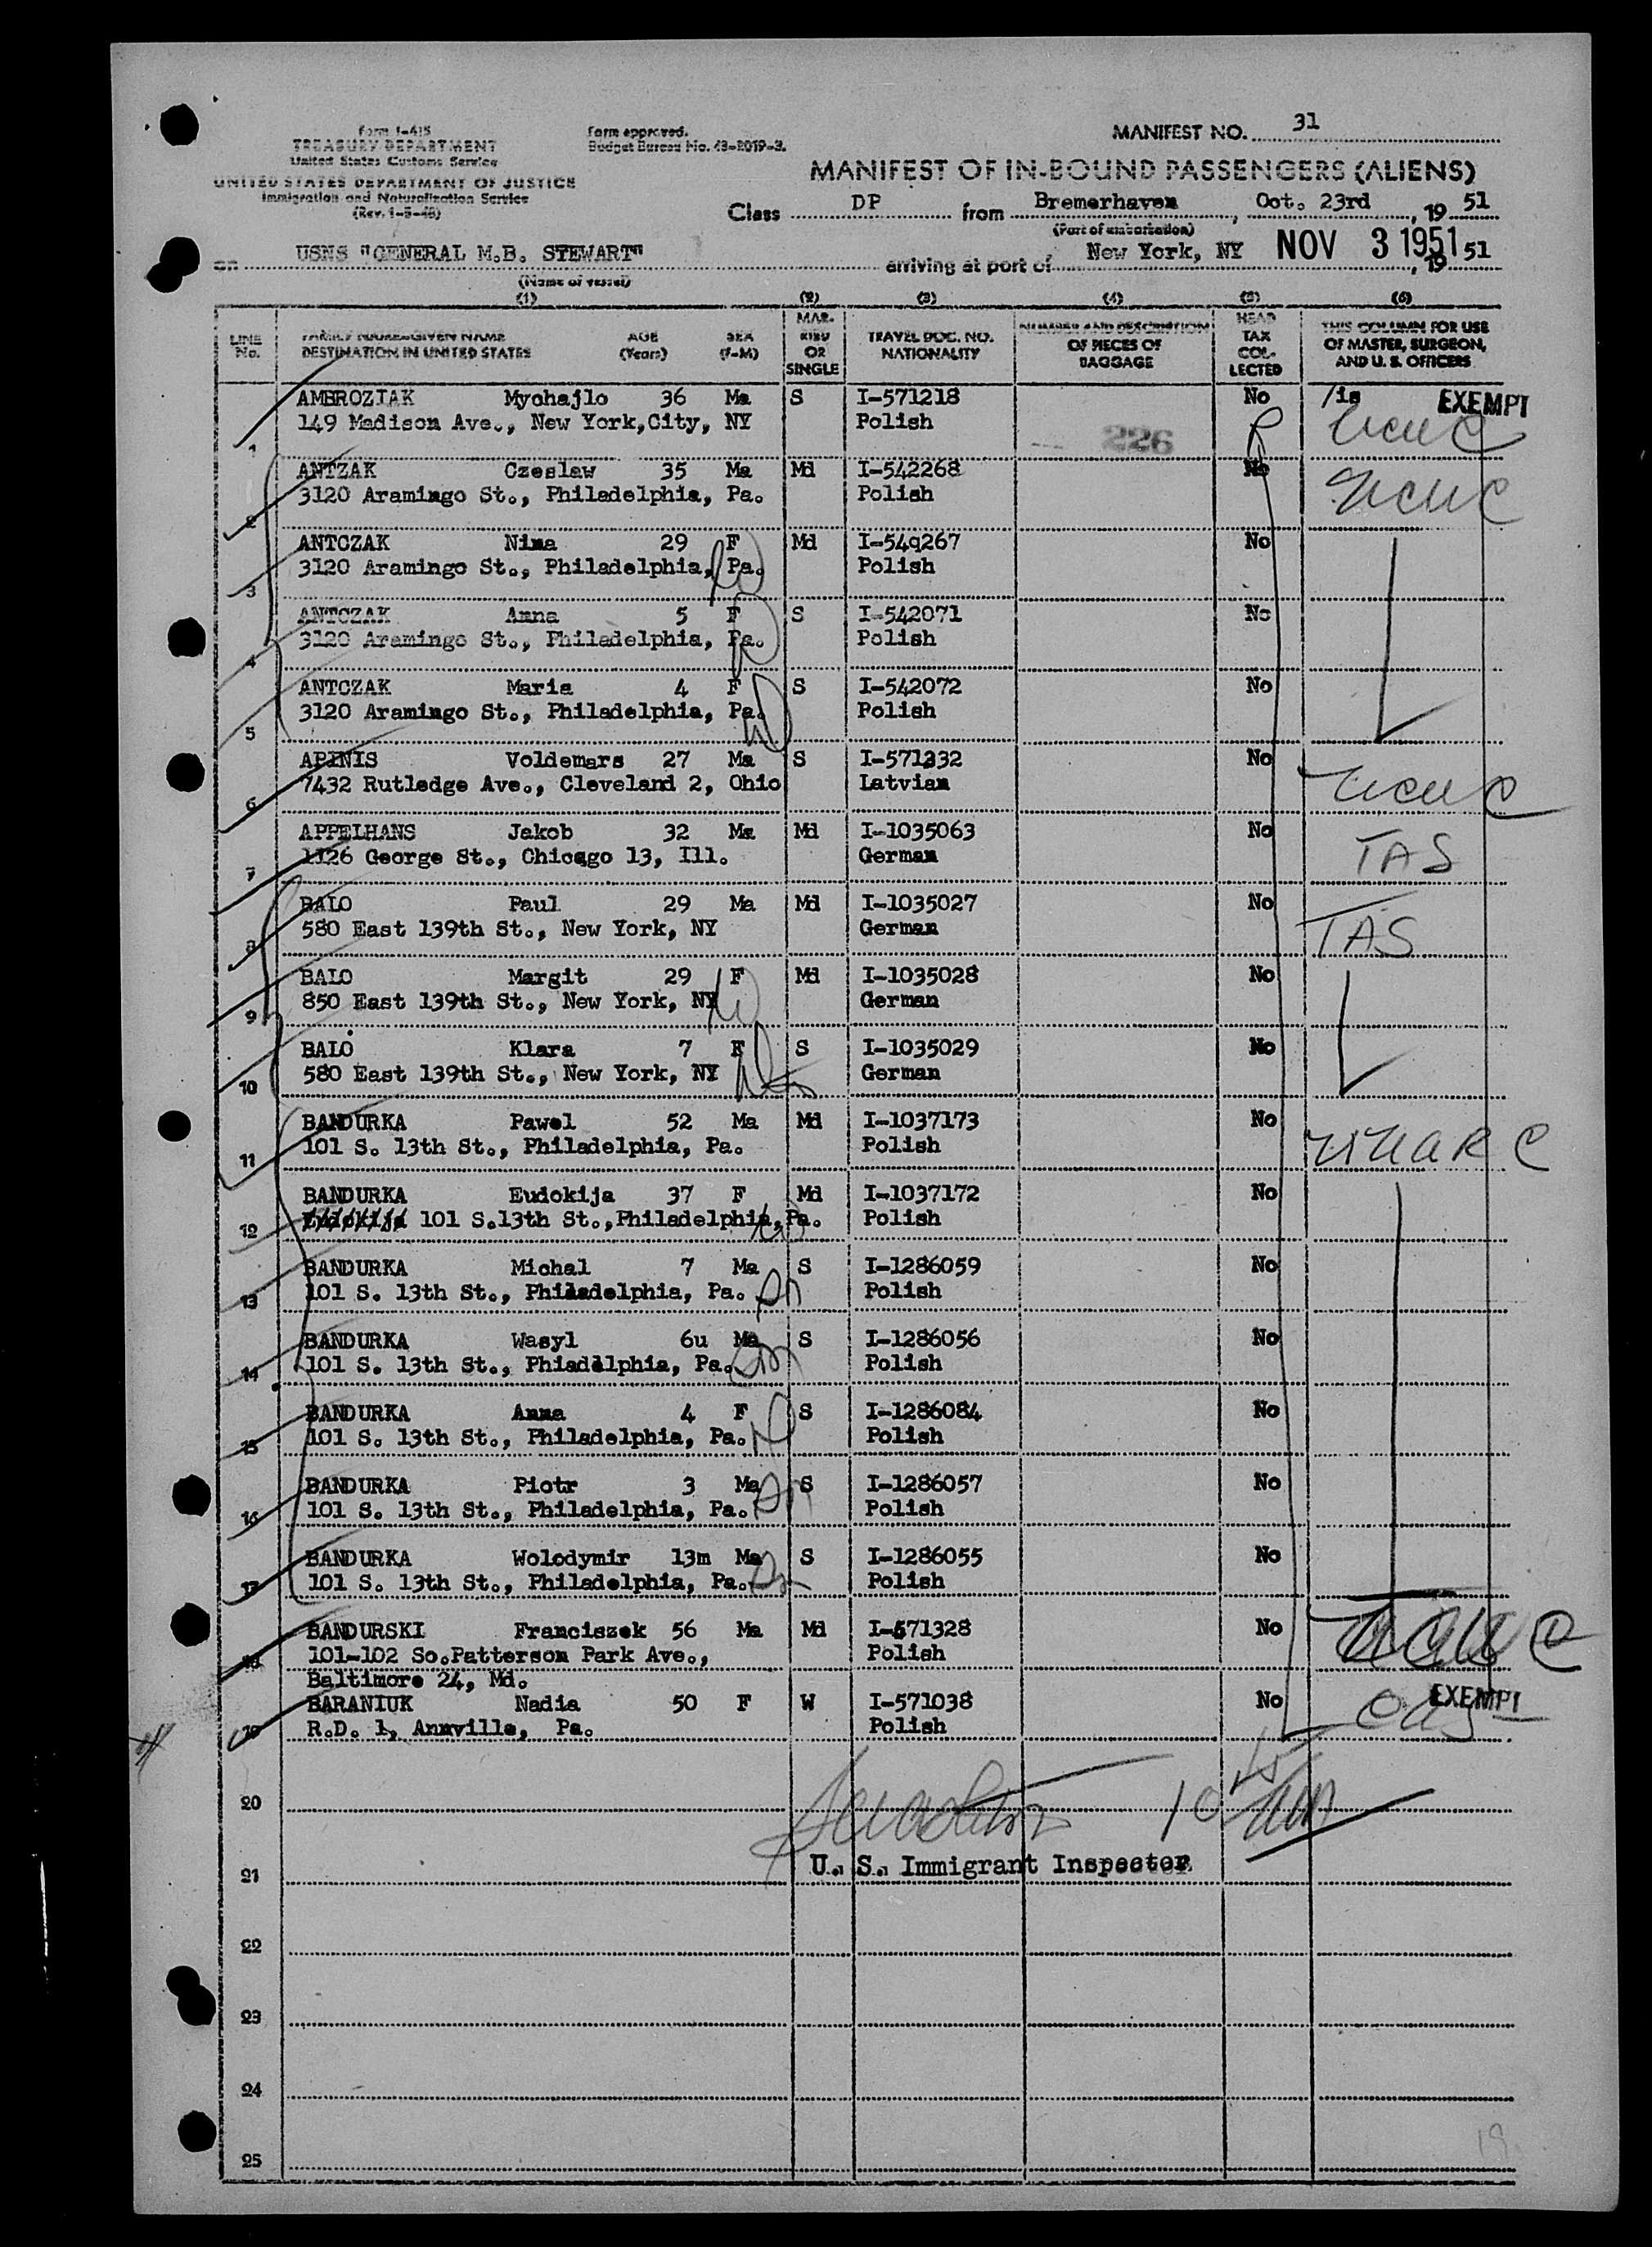 Form I-415
TREASURY DEPARTMENT
United States Customs Service
UNITED STATES DEPARTMENT OF JUSTICE
Immigration and Naturalization Service
(Rev. 1-5-48)
Form approved.
Budget Bureau No. 43-R019-3.
MANIFEST NO. 31
MANIFEST OF IN-BOUND PASSENGERS (ALIENS)
Class DP from Bremerhaven, Oct. 23rd, 19 51
(Port of embarkation)
on USNS "GENERAL M.B. STEWART" arriving at port of New York, NY NOV 3 1951, 19 51
(Name of vessel)
(1) (2) (3) (4) (5) (6)
LINE No. FAMILY NAME—GIVEN NAME DESTINATION IN UNITED STATES AGE (Years) SEX (F-M) MARRIED OR SINGLE TRAVEL DOC. NO. NATIONALITY NUMBER AND DESCRIPTION OF PIECES OF BAGGAGE HEAD TAX COLLECTED THIS COLUMN FOR USE OF MASTER, SURGEON, AND U. S. OFFICERS
1 AMBROZIAK Mychajlo 36 Ma S I-571218 No /is EXEMPT
149 Madison Ave., New York,City, NY Polish 226
2 ANTZAK Czeslaw 35 Ma Md I-542268 No
3120 Aramingo St., Philadelphia, Pa. Polish
3 ANTCZAK Nina 29 F Md I-54q267 No
3120 Aramingo St., Philadelphia, Pa. Polish
4 ANTCZAK Anna 5 F S I-542071 No
3120 Aramingo St., Philadelphia, Pa. Polish
5 ANTCZAK Maria 4 F S I-542072 No
3120 Aramingo St., Philadelphia, Pa. Polish
6 APINIS Voldemars 27 Ma S I-571232 No
7432 Rutledge Ave., Cleveland 2, Ohio Latvian
7 APPELHANS Jakob 32 Ma Md I-1035063 No TAS
1126 George St., Chicago 13, Ill. German
8 BALO Paul 29 Ma Md I-1035027 No TAS
580 East 139th St., New York, NY German
9 BALO Margit 29 F Md I-1035028 No
850 East 139th St., New York, NY German
10 BALO Klara 7 F S I-1035029 No
580 East 139th St., New York, NY German
11 BANDURKA Pawel 52 Ma Md I-1037173 No
101 S. 13th St., Philadelphia, Pa. Polish
12 BANDURKA Eudokija 37 F Md I-1037172 No
101 S.13th St.,Philadelphia,Pa. Polish
13 BANDURKA Michal 7 Ma S I-1286059 No
101 S. 13th St., Philadelphia, Pa. Polish
14 BANDURKA Wasyl 6u Ma S I-1286056 No
101 S. 13th St., Phiadelphia, Pa. Polish
15 BANDURKA Anna 4 F S I-1286084 No
101 S. 13th St., Philadelphia, Pa. Polish
16 BANDURKA Piotr 3 Ma S I-1286057 No
101 S. 13th St., Philadelphia, Pa. Polish
17 BANDURKA Wolodymir 13m Ma S I-1286055 No
101 S. 13th St., Philadelphia, Pa. Polish
18 BANDURSKI Franciszek 56 Ma Md I-571328 No
101-102 So.Patterson Park Ave., Polish
Baltimore 24, Md.
19 BARANIUK Nadia 50 F W I-571038 No EXEMPT
R.D. 1, Annville, Pa. Polish
20
21 U. S. Immigrant Inspector
22
23
24
25
19